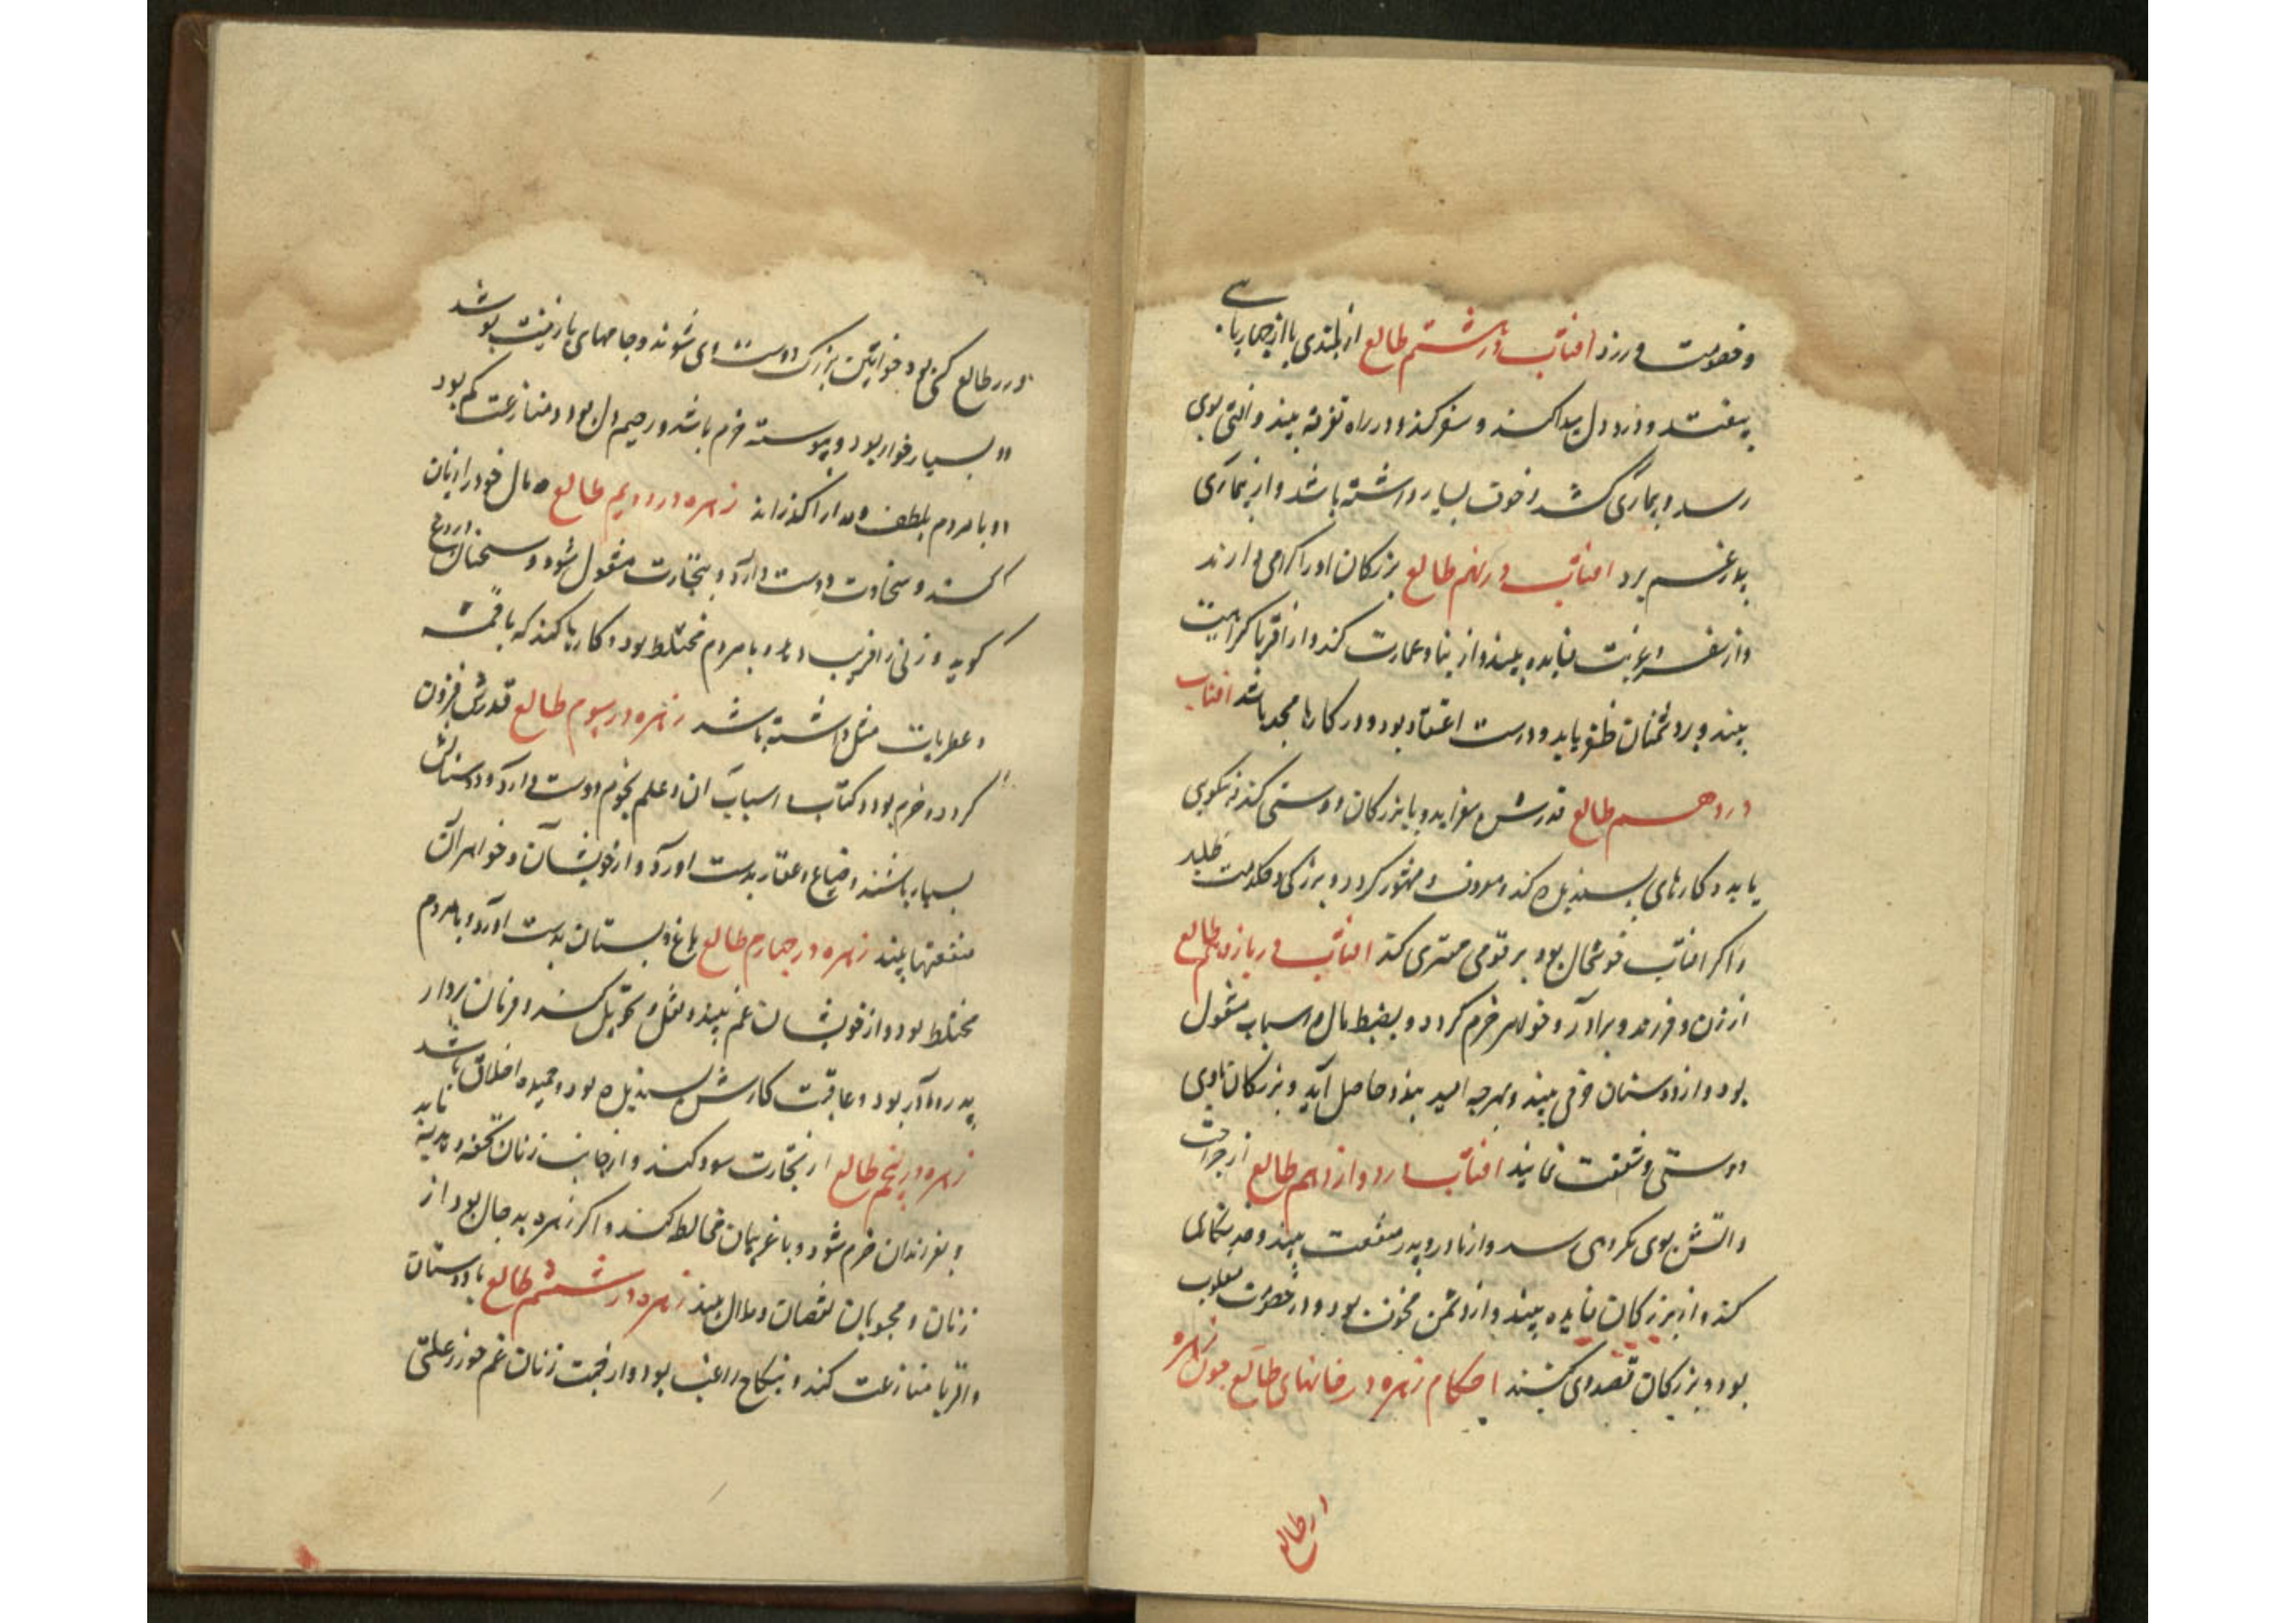 و خصومت ورزد افتاب در هشتم طالع از بلندی یا از چهارپای
بیفتد و درد دل پیدا کند و سفر کند و در راه تفرقه بیند و المی بوی
رسد و بیماری کشد و خوف بسیار داشته باشد و از بیماری
پدر غم برد افتاب در نهم طالع بزرکان او را کرامی دارند
و از سفر و غربت فایده بیند و از بنا و عمارت کند و از اقربا کراهیت
بیند و بر دشمنان ظفر یابد و درست اعتقاد بود و در کارها مجد باشد افتاب
در دهم طالع قدرش بیفزاید و با بزرکان دوستی کند نیکویی
یابد و کارهای پسندیده کند و معروف و مشهور کردد و بزرکی و حکومت طلبد
و اکر افتاب خوشحال بود بر قومی مهتری کند افتاب در یازدهم طالع
از زن و فرزند و برادر و خواهر خرم کردد و بضبط مال و اسباب مشغول
بود و از دوستان خرمی بیند و بهرچه امید بندد حاصل آید و بزرکان با وی
دوستی و شفقت نمایند افتاب در دوازدهم طالع از جراحت
و اتش بوی مکروهی رسد و از مادر و پدر منفعت بیند و خدمتکاری
کند و از بزرکان فایده بیند و از دشمن محزون بود و در خصومت مغلوب
بود و بزرکان قصد وی کنند احکام زهره در خانهای طالع چون زهره
در طالع
در طالع کسی بود خواتین بزرک دوست وی شوند و جامهای با زینت پوشد
و بسیار خوار بود و پیوسته خرم باشد و رحیم دل بود و منازعت کم بود
و با مردم بلطف و مدارا کذراند زهره در دویم طالع مال خود را زیان
کند و سخاوت دوست دارد و بتجارت مشغول شود و سخنان دروغ
کوید و زنی را فریب دهد و با مردم مختلط بود و کارها کند که با قمشه
و عطریات مثل داشته باشد زهره در سوم طالع قدرش فزون
کردد و خرم بود و کتاب و اسباب آن و علم نجوم دوست دارد و دوستانش
بسیار باشند و ضیاع و عقار بدست اورد و از خویشان و خواهران
منفعتها بیند زهره در چهارم طالع باغ و بستان بدست اورد و با مردم
مختلط بود و از خویشان غم بیند و نقل و تحویل کند و فرمان بردار
پدر و مادر بود و عاقبت کارش پسندیده بود و حمیده اخلاق باشد
زهره در پنجم طالع از تجارت سود کند و از جانب زنان تحفه و هدیه یابد
و بفرزندان خرم شود و با غریبان مخالطه کند و اکر زهره بد حال بود از
زنان و محبوبان نقصان و ملال بیند زهره در ششم طالع با دوستان
و اقربا منازعت کند و بنکاح راغب بود و از جهت زنان غم خورد علتی